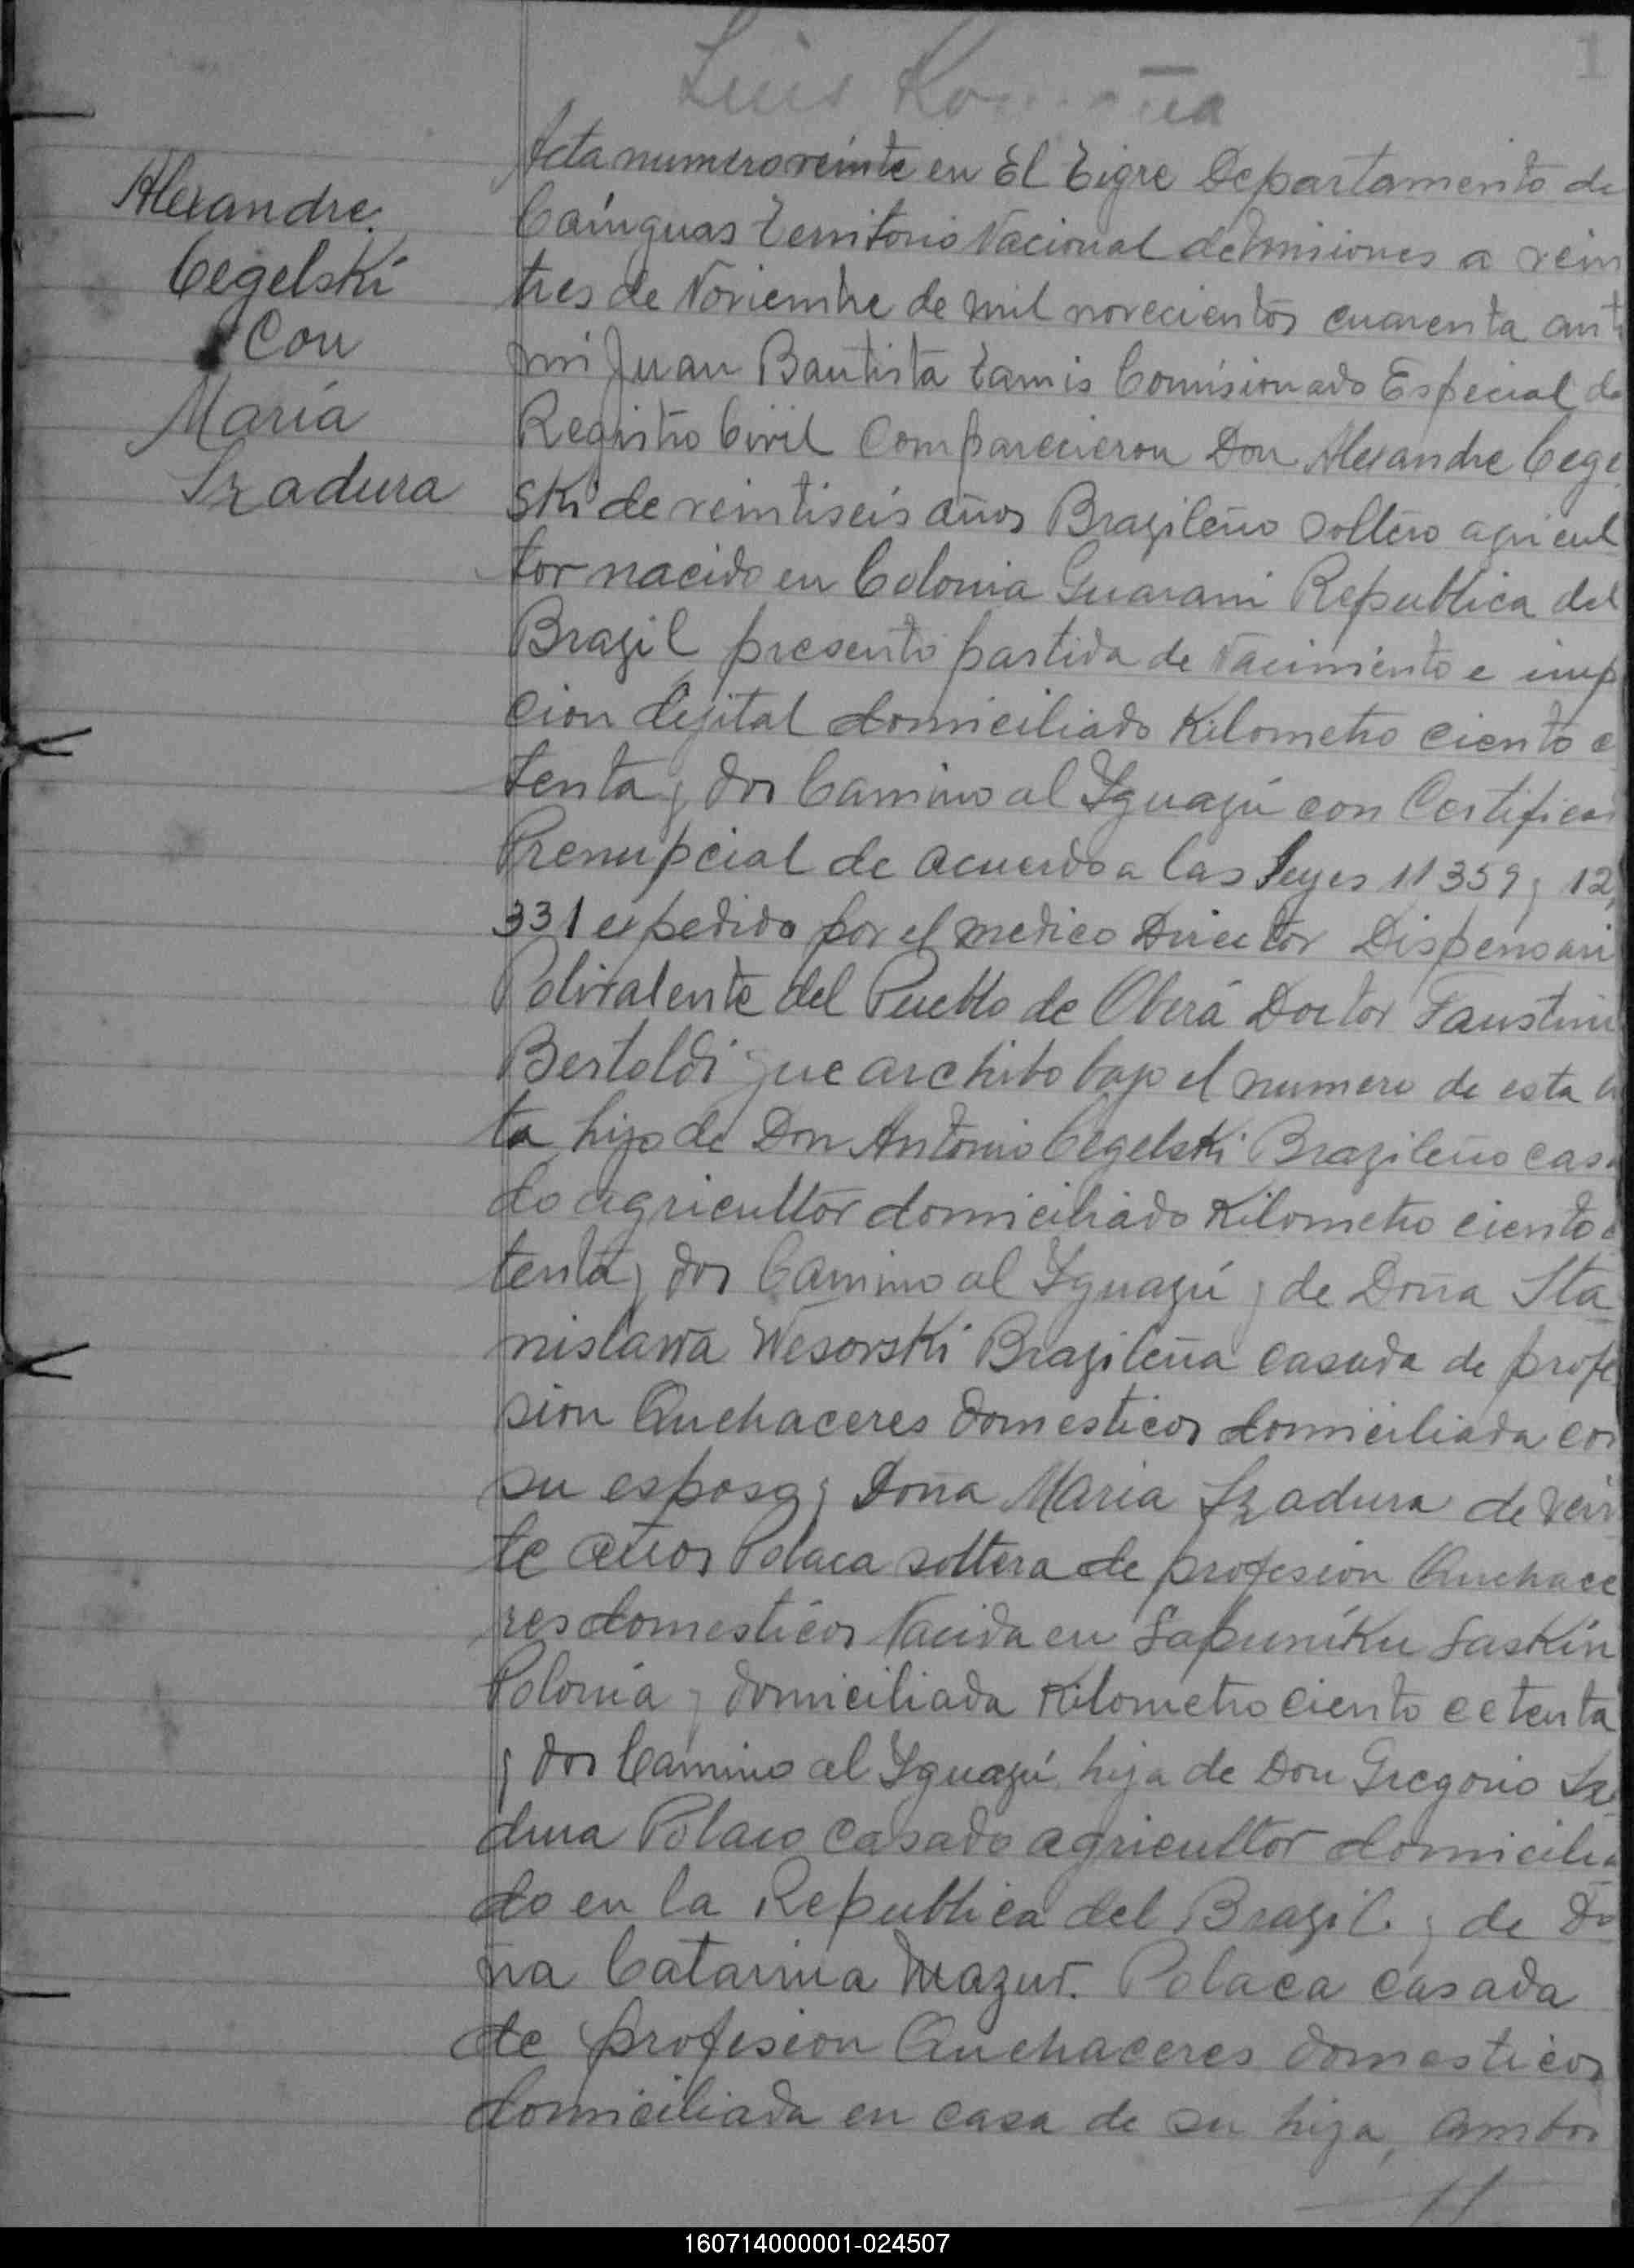 Luis
1
Alexandre
Cegelski
Con
María
Szadura
Acta numero veinte en El Tigre Departamento de
Caínguas Territorio Nacional de Misiones a vein
tres de Noviembre de mil novecientos cuarenta ant
mi Juan Bautista Tamis Comisionado Especial de
Registro Civil Comparecieron Don Alexandre Cege
ski de veintiseis años Brazileño soltero agricul
tor nacido en Colonia Guarani Republica del
Brazil presento partida de Nacimiento e imp
cion dijital domiciliado Kilometro ciento c
tenta y dos Camino al Yguazú con Certifica
Prenupcial de acuerdo a las Leyes 11359 y 12,
331 expedido por el medico Director Dispensari
Polivalente del Pueblo de Oberá Doctor Faustini
Bertoldi que archibo bajo el numero de esta a
ta hijo de Don Antonio Cegelski Brazileño casa
do agricultor domiciliado Kilometro ciento c
tenta y dos Camino al Yguazú y de Doña Sta
nislawa Wesovski Brazileña casada de profe
sion Quehaceres domesticos domiciliada con
su esposo y Doña Maria Szadura de vein
te años Polaca soltera de profesion Quehace
res domesticos Nacida en Sapuniku Saskin
Polonia y domiciliada Kilometro ciento cetenta
y dos Camino al Yguazú hija de Don Gregorio Sz
dura Polaco casado agricultor domicilia
do en la Republica del Brazil y de Do
ña Catarina Mazur. Polaca casada
de profesion Quehaceres domesticos
domiciliada en casa de su hija, ambos
160714000001-024507